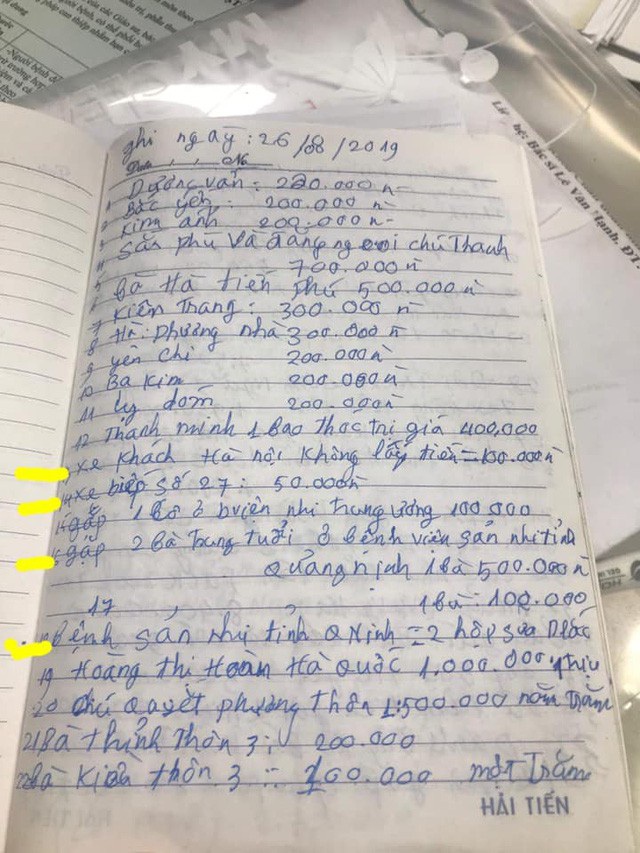 ghi ngày: 26/08/2019
Date No
1 Dương vấn: 220.000 n
2 Bác yến: 200.000 n
3 Kim ánh 200.000 n
4 Sản phụ và đẳng người chú Thanh
5 700.000 n
6 Bà Hà tiến Phú 500.000 n
7 Kiên Trang: 300.000 n
8 Hà: phương nhà 300.000 n
9 yến chi 200.000 n
10 Ba Kim 200.000 n
11 ly dom 200.000 n
12 Thanh minh 1 bao thóc trị giá 400,000
xe khách Hà nội không lấy tiền = 100.000 n
14 xe biếp số 27: 50.000 n
15 gặp 1 cô ở bviện nhi trung ương 100.000
gặp 2 bà trung tuổi ở bệnh viện sản nhi tỉnh
Quảng ninh 1 bà 500.000 n
17 , , 1 bà: 100.000
Bệnh sản nhi tỉnh Q Ninh = 2 hộp sữa
19 Hoang thị Hoàn Hà Quốc 1,000.000 1 triệu
20 chú Quyết phương thôn 1: 500.000 năm Trăm
21 Bà thỉnh Thôn 3: 200.000
22 Bà Kiều thôn 3 : 100.000 một Trăm
HẢI TIẾN
Bác sĩ Lê Văn Hạnh, ĐT